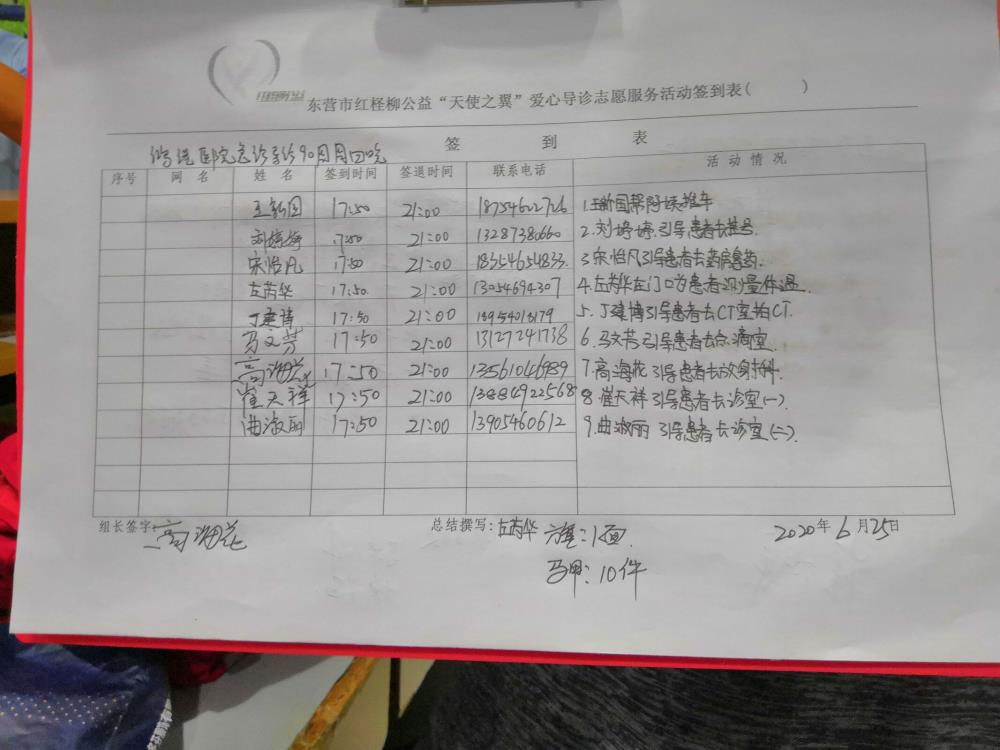 东营市红柽柳公益“天使之翼”爱心导诊志愿服务活动签到表( )
签 到 表
鸿港医院急诊导诊90周周四晚
序号 网 名 姓 名 签到时间 签退时间 联系电话 活 动 情 况
王新国 17:50 21:00 18754622726 1.王新国帮助候推车
刘婷婷 17:50 21:00 13287380660 2.刘婷婷引导患者去挂号
宋怡凡 17:50 21:00 18354654833 3.宋怡凡引导患者去药房拿药.
左芮华 17:50. 21:00 13054694307 4.左芮华在门口为患者测量体温.
丁建博 17:50 21:00 5.丁建博引导患者去CT室拍CT.
马文芳 17:50 21:00 13127241738 6.马文芳引导患者去点滴室.
高海花 17:50 21:00 13561046989 7.高海花引导患者去放射科.
崔天祥 17:50 21:00 13884922568 8.崔天祥引导患者去诊室(一)
曲淑丽 17:50 21:00 13905460612 9.曲淑丽引导患者去诊室(二).
组长签字:高海花 总结撰写:左芮华 旗:1面. 2020年6月25日
马甲:10件